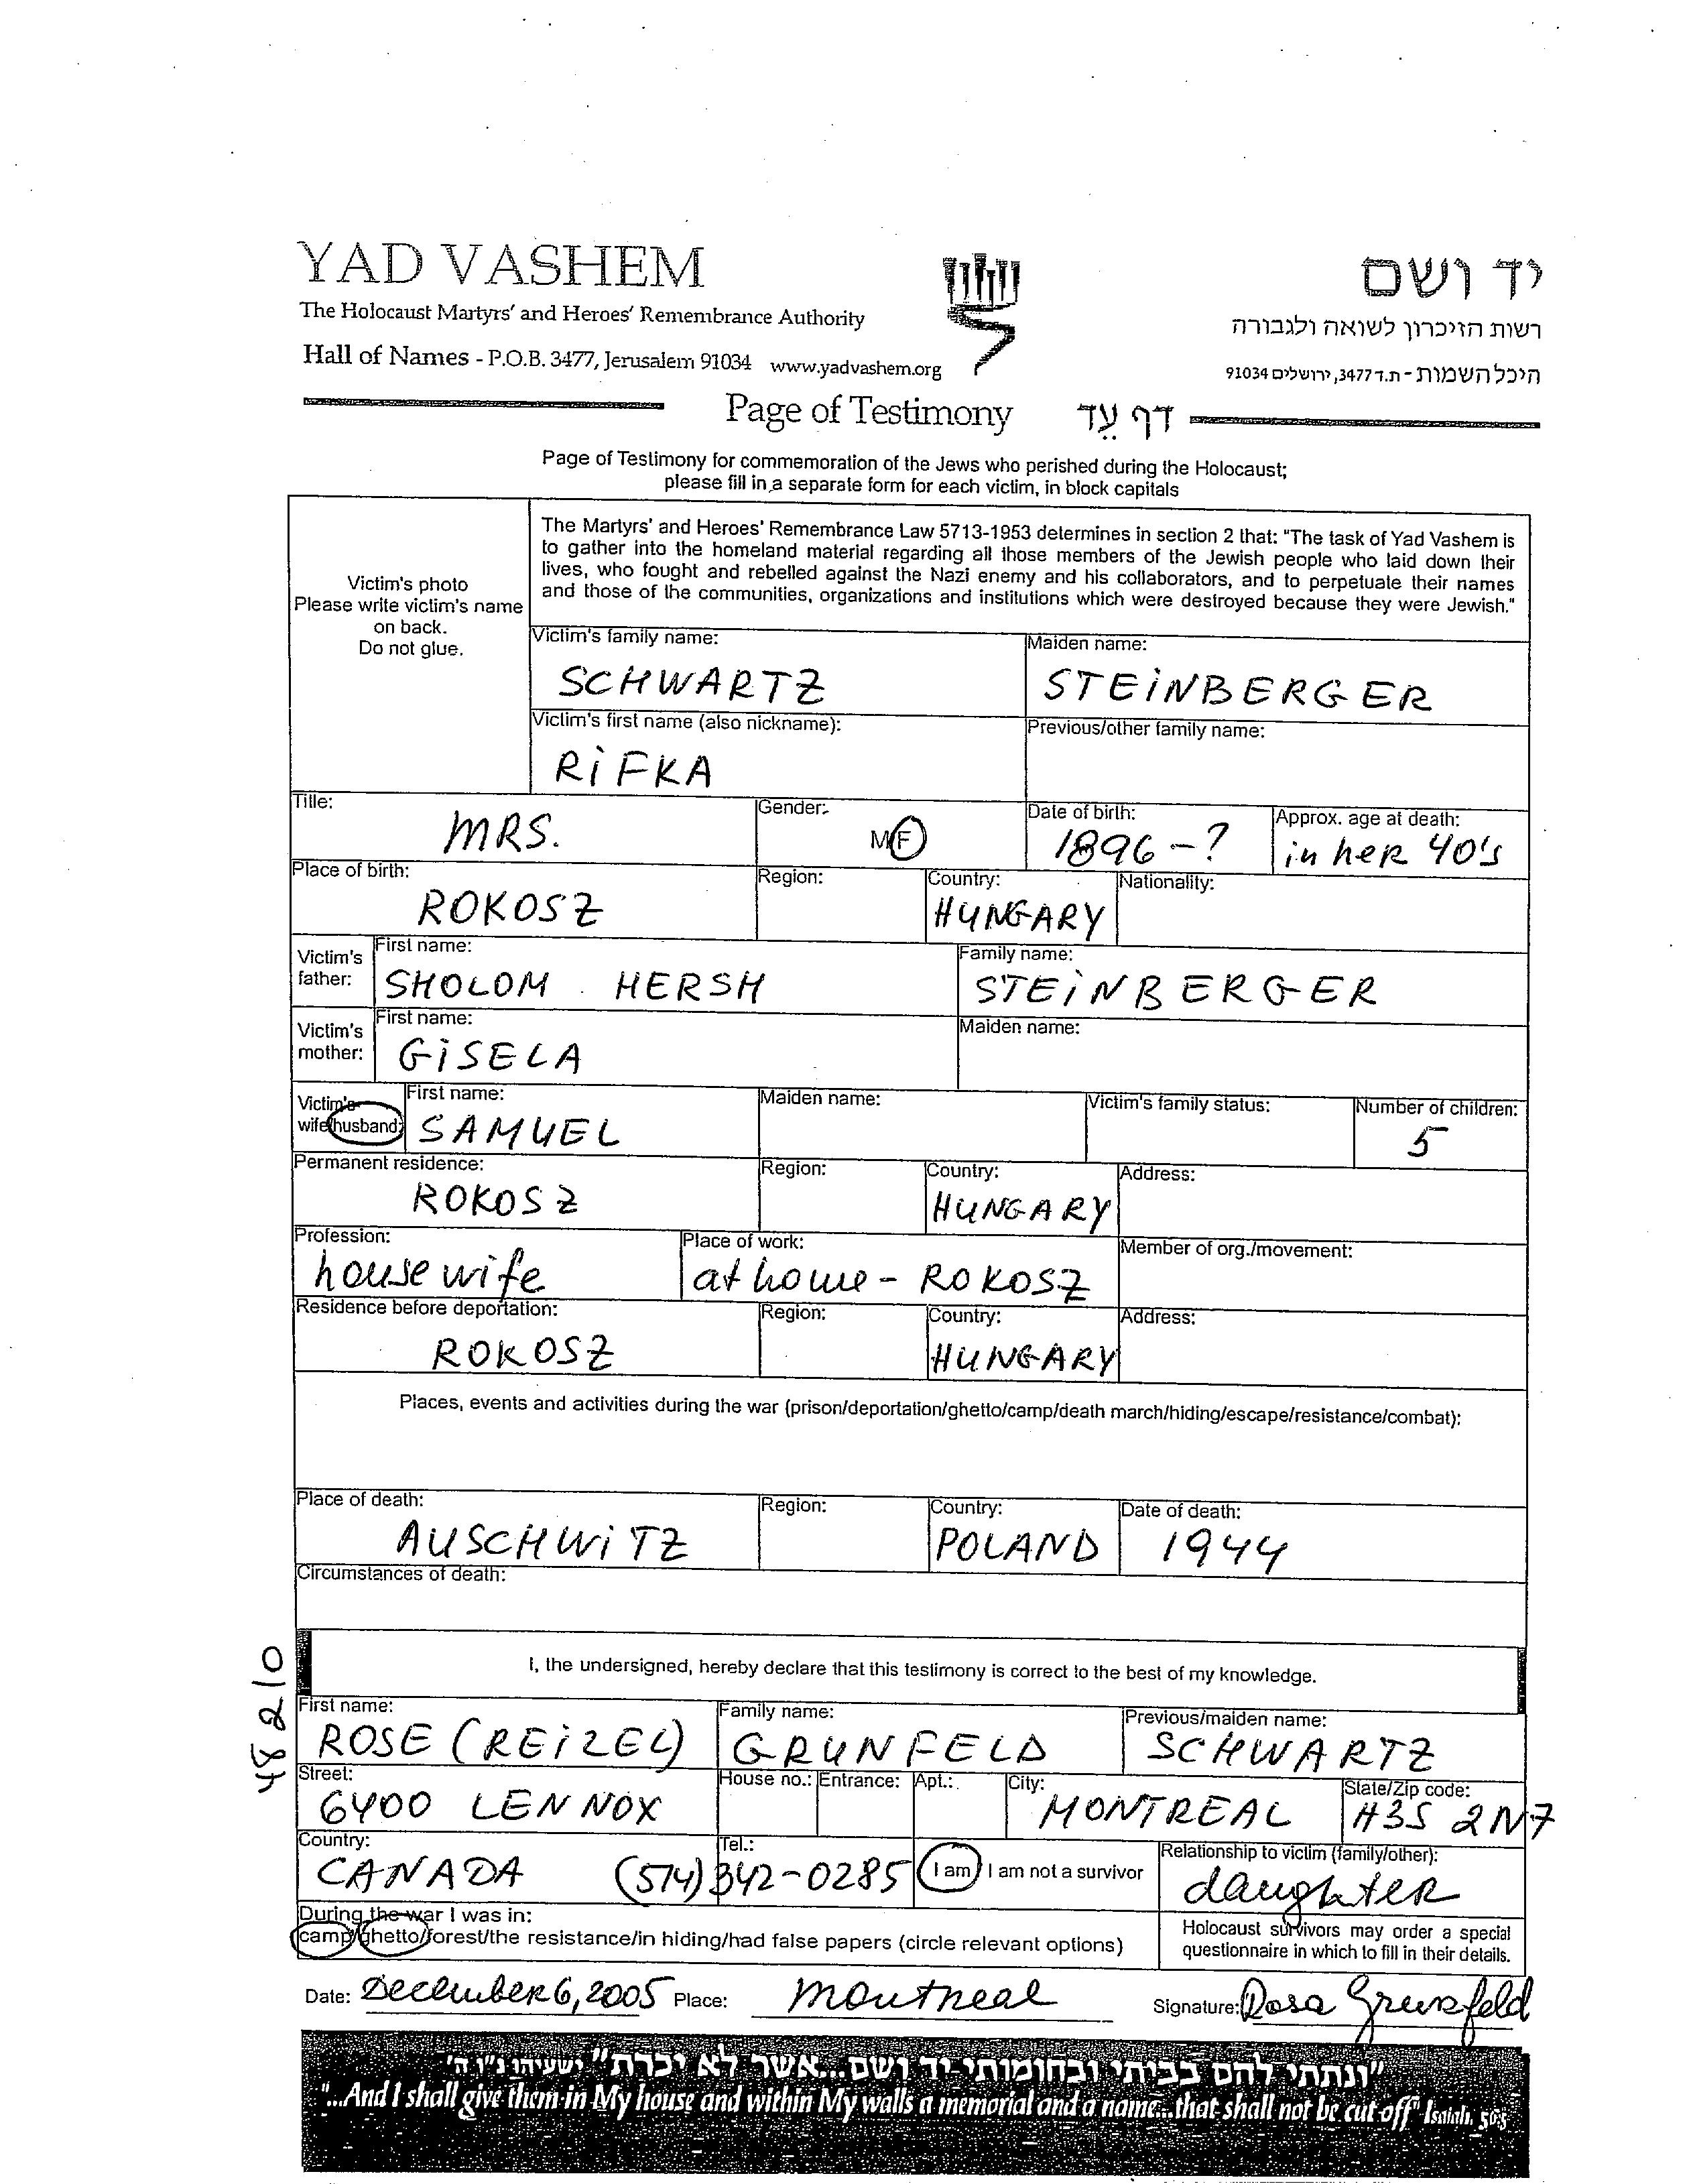 YAD VASHEM
The Holocaust Martyrs' and Heroes' Remembrance Authority
Hall of Names - P.O.B. 3477, Jerusalem 91034 www.yadvashem.org
יד ושם
רשות הזיכרון לשואה ולגבורה
היכל השמות - ת.ד 3477, ירושלים 91034
Page of Testimony דף עֵד
Page of Testimony for commemoration of the Jews who perished during the Holocaust;
please fill in a separate form for each victim, in block capitals
Victim's photo
Please write victim's name
on back.
Do not glue.
The Martyrs' and Heroes' Remembrance Law 5713-1953 determines in section 2 that: "The task of Yad Vashem is
to gather into the homeland material regarding all those members of the Jewish people who laid down their
lives, who fought and rebelled against the Nazi enemy and his collaborators, and to perpetuate their names
and those of the communities, organizations and institutions which were destroyed because they were Jewish."
Victim's family name: Maiden name:
SCHWARTZ STEINBERGER
Victim's first name (also nickname): Previous/other family name:
RIFKA
Title: Gender: Date of birth: Approx. age at death:
MRS. M/F 1896-? in her 40's
Place of birth: Region: Country: Nationality:
ROKOSZ HUNGARY
Victim's father: First name: Family name:
SHOLOM HERSH STEINBERGER
Victim's mother: First name: Maiden name:
GISELA
Victim's wife/husband: First name: Maiden name: Victim's family status: Number of children:
SAMUEL 5
Permanent residence: Region: Country: Address:
ROKOSZ HUNGARY
Profession: Place of work: Member of org./movement:
housewife at home - ROKOSZ
Residence before deportation: Region: Country: Address:
ROKOSZ HUNGARY
Places, events and activities during the war (prison/deportation/ghetto/camp/death march/hiding/escape/resistance/combat):
Place of death: Region: Country: Date of death:
AUSCHWITZ POLAND 1944
Circumstances of death:
I, the undersigned, hereby declare that this testimony is correct to the best of my knowledge.
48210
First name: Family name: Previous/maiden name:
ROSE (REIZEL) GRUNFELD SCHWARTZ
Street: House no.: Entrance: Apt.: City: State/Zip code:
6400 LENNOX MONTREAL H3S 2N7
Country: Tel.: Relationship to victim (family/other):
CANADA (514) 342-0285 I am / I am not a survivor daughter
During the war I was in:
camp/ghetto/forest/the resistance/in hiding/had false papers (circle relevant options)
Holocaust survivors may order a special
questionnaire in which to fill in their details.
Date: December 6, 2005 Place: Montreal Signature: Rosa Grunfeld
"ונתתי להם בביתי ובחומותי יד ושם...אשר לא יכרת" ישעיהו נ"ו ה'
"...And I shall give them in My house and within My walls a memorial and a name...that shall not be cut off" Isaiah, 56:5